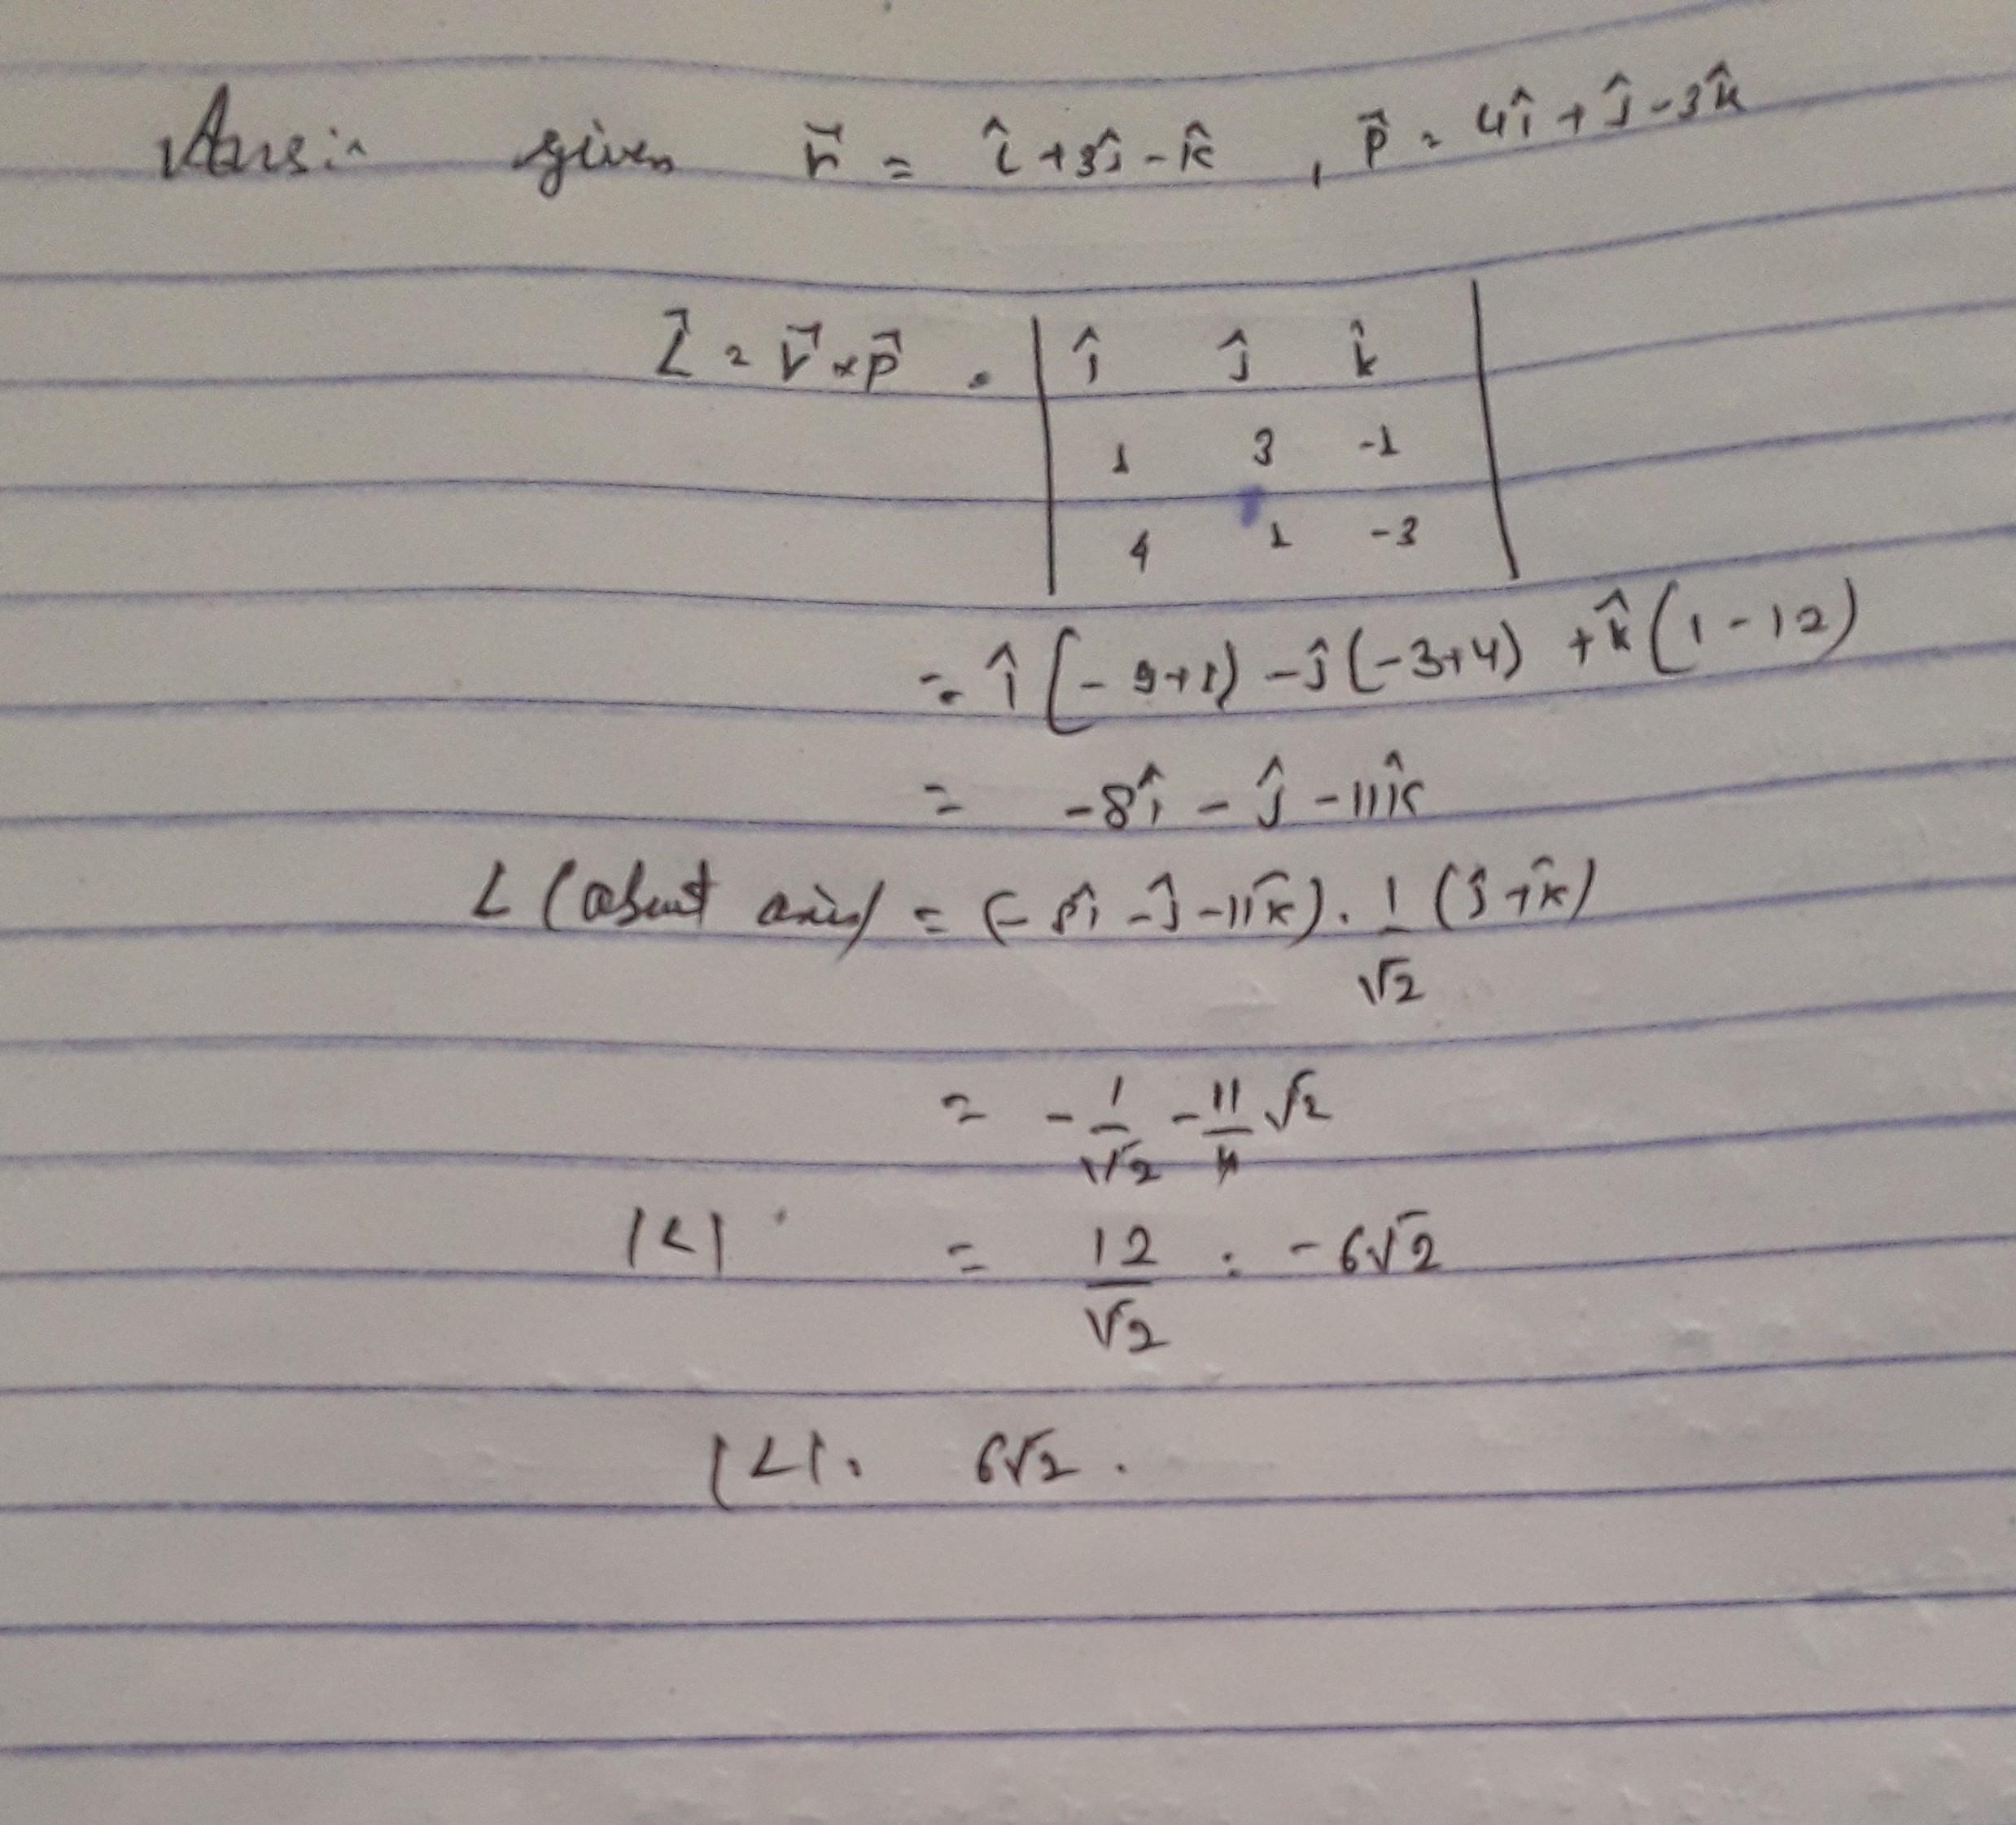 Ans:- given r⃗ = î + 3ĵ - k̂ , p⃗ = 4î + ĵ - 3k̂
L⃗ = r⃗ × p⃗ = | î ĵ k̂ |
1 3 -1
4 1 -3
= î (-9+1) - ĵ (-3+4) + k̂ (1-12)
= -8î - ĵ - 11k̂
L (about axis) = (-8î - ĵ - 11k̂) . 1/√2 (ĵ + k̂)
= -1/√2 - 11/ √2
|L| = 12/√2 = -6√2
|L| = 6√2 .